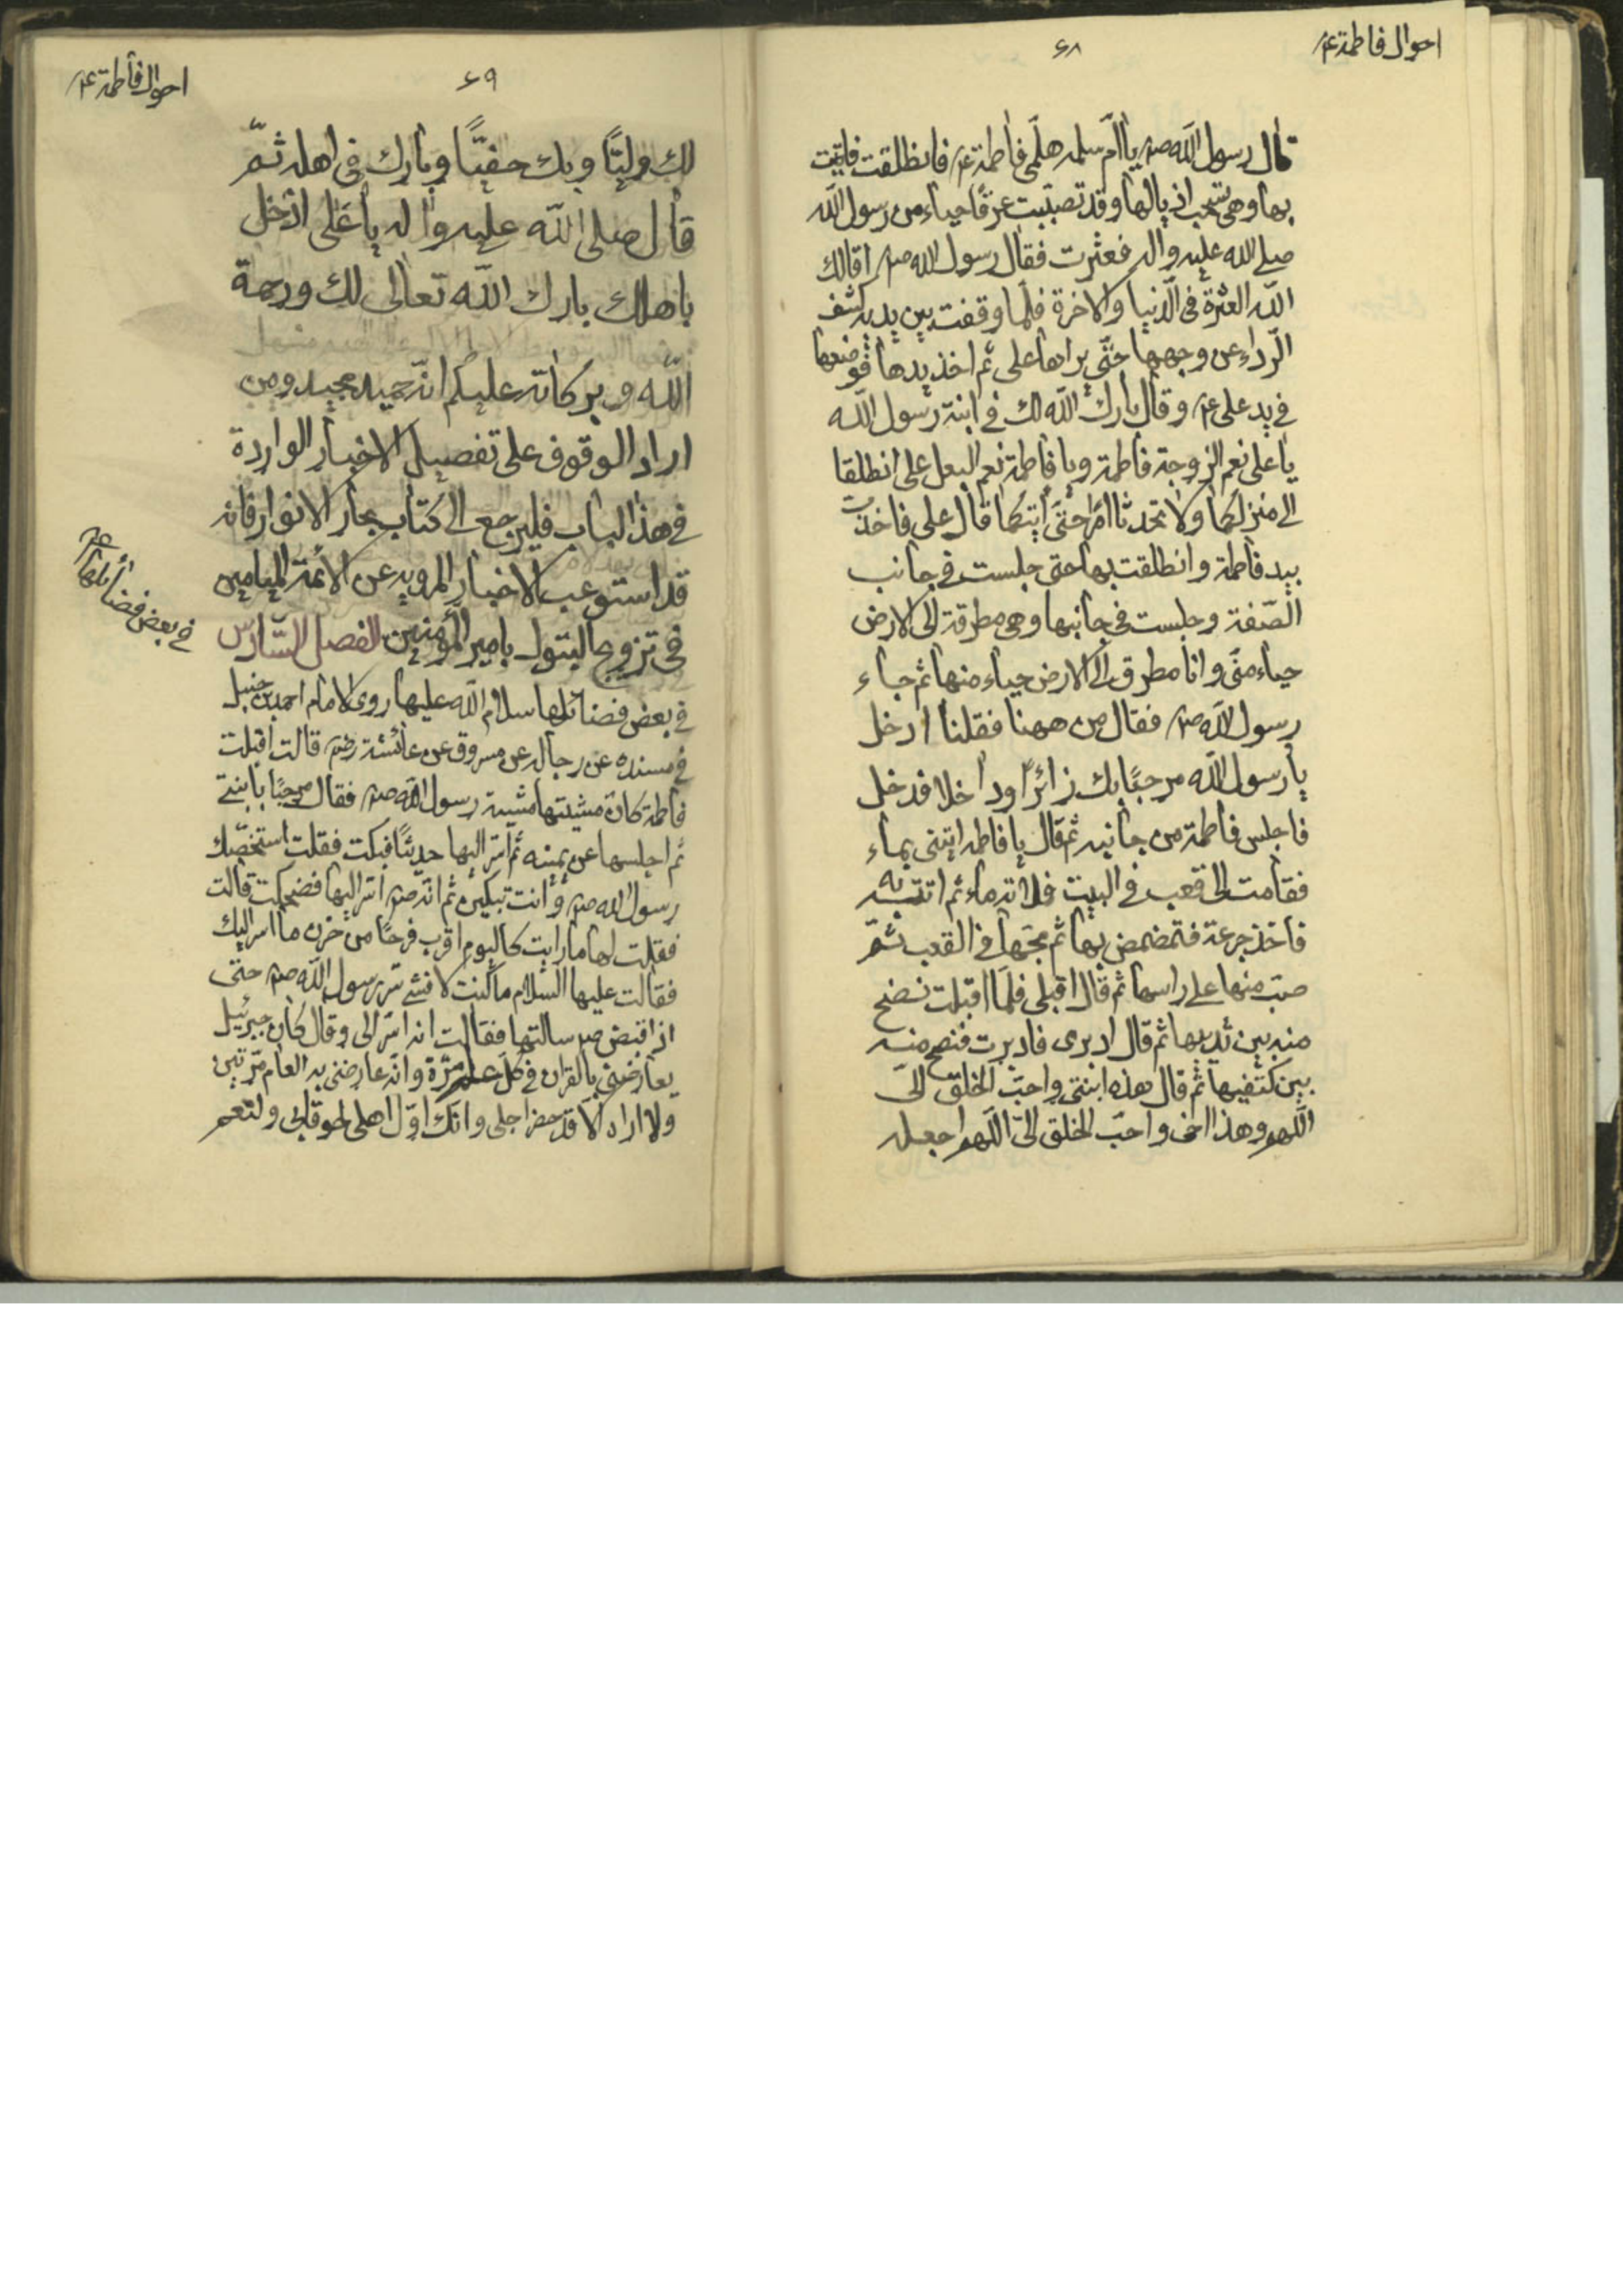 احوال فاطمة ع
۶۸
قال رسول الله ص يا ام سلمه هلمى فاطمة ع فانطلقت فاتيت
بها وهى تسحب اذيالها وقد تصببت عرقا حياء من رسول الله
صلى الله عليه واله فعثرت فقال رسول الله ص اقالك
الله العثرة فى الدنيا والاخرة فلما وقفت بين يديه كشف
الرداء عن وجهها حتى يراها على ثم اخذ يدها فوضعها
فى يد على ع وقال بارك الله لك فى ابنة رسول الله
يا على نعم الزوجة فاطمة ويا فاطمة نعم البعل على انطلقا
الى منزلكما ولا تحدثا امرا حتى اتيكما قال على فاخذت
بيد فاطمة وانطلقت بها حتى جلست فى جانب
الصّفة وجلست فى جانبها وهى مطرقة الى الارض
حياء منى وانا مطرق الى الارض حياء منها ثم جاء
رسول الله ص فقال من ههنا فقلنا ادخل
يا رسول الله مرحبًا بك زائرًا وداخلا فدخل
فاجلس فاطمة من جانبه ثم قال يا فاطمه ايتنى بماء
فقامت الى قعب فى البيت فملاته ماء ثم اتته به
فاخذ جرعة فتمضمض بها ثم مجّها فى القعب ثمّ
صبّ منها على راسها ثم قال اقبلى فلمّا اقبلت نضح
منه بين ثدييها ثم قال ادبرى فادبرت فنضح منه
بين كتفيها ثم قال هذه ابنتى واحبّ الخلق الىّ
اللّهم وهذا اخى واحبّ الخلق الىّ اللّهم اجعله
احوال فاطمة ع
۶۹
لك وليًّا وبك حفيًّا وبارك فى اهله ثمّ
قال صلى الله عليه واله يا على ادخل
باهلك بارك الله تعالى لك ورحمة
الله وبركاته عليكم انّه حميد مجيد ومن
اراد الوقوف على تفصيل الاخبار الواردة
فى هذا الباب فليرجع الى كتاب بحار الانوار فانه
قد استوعب الاخبار المرويه عن الائمة الميامين
فى تزويج البتول بامير المؤمنين الفصل السّادس
فى بعض فضائلها ع
فى بعض فضائلها سلام الله عليها روى الامام احمد بن حنبل
فى مسنده عن رجاله عن مسروق عن عائشة رض قالت اقبلت
فاطمة كان مشيتها مشية رسول الله ص فقال مرحبًا بابنتى
ثم اجلسها عن يمينه ثم اسّر اليها حديثًا فبكت فقلت استخصّك
رسول الله ص وانت تبكين ثم انّه ص اسّر اليها فضحكت قالت
فقلت لها ما رايت كاليوم اقرب فرحًا من حزن ما اسر اليك
فقالت عليها السلام ما كنت لافشى سّر رسول الله ص حتى
اذا قبض ص سالتها فقالت انه اسّر الى وقال كان جبرئيل
يعارضنى بالقران فى كل عام مرّة وانّه عارضنى به العام مرّتين
ولا اراه الا قد حضر اجلى وانّك اوّل اهلى لحوقا بى ولنعم